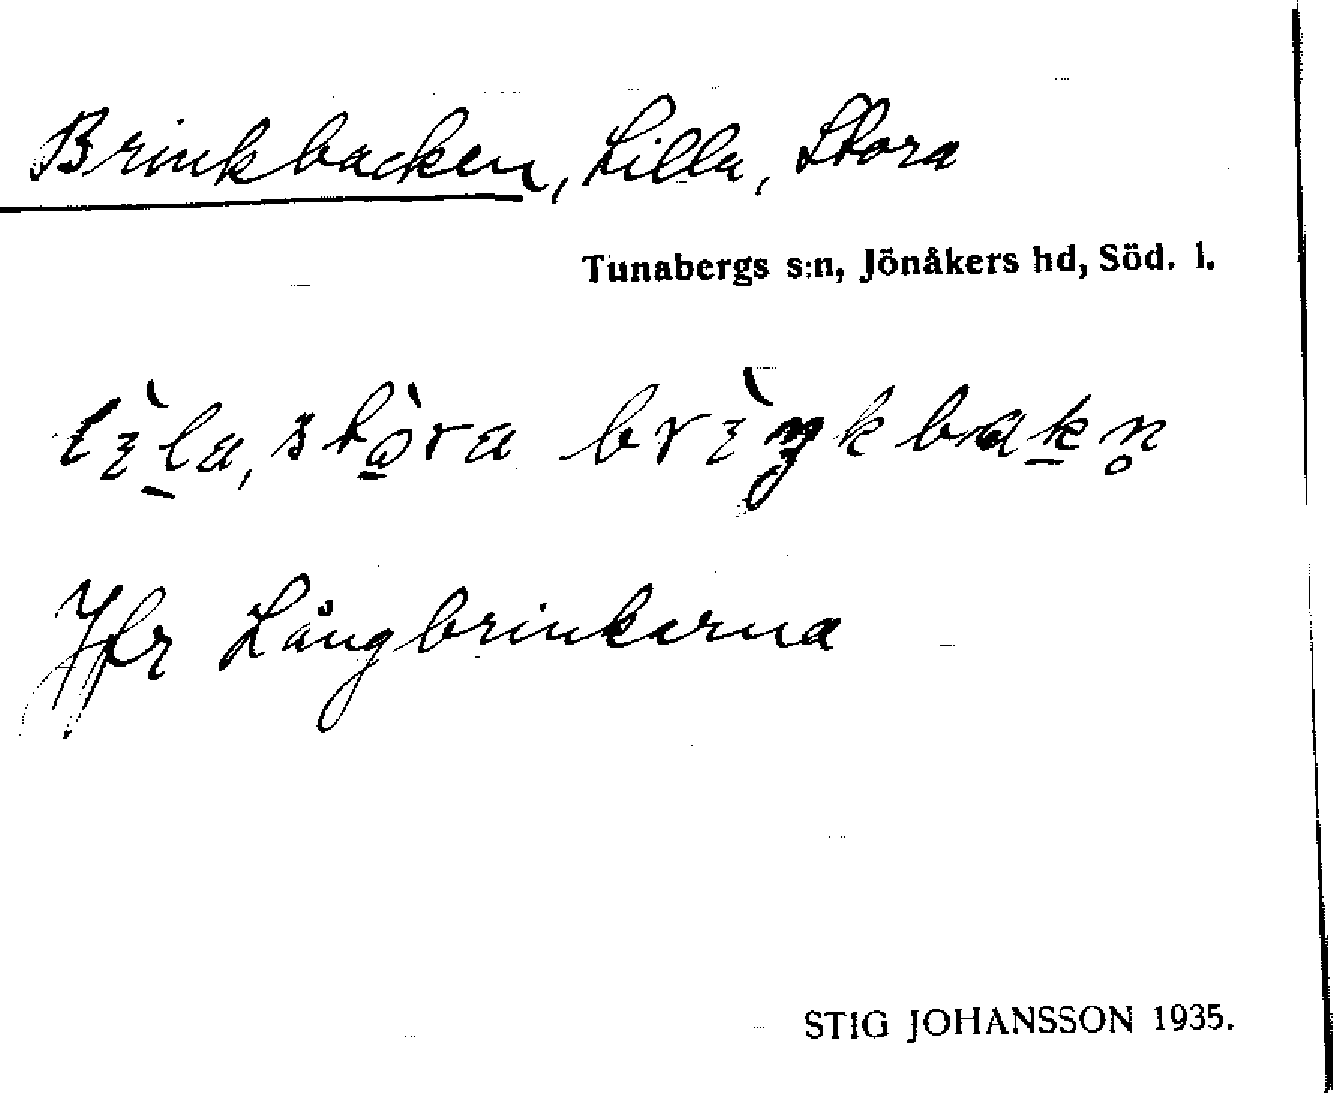 Brinkbacken, Lilla, Stora
Tunabergs s:n, Jönåkers hd, Söd. l.
lìl̠a, stò̠ra brìŋkbak̠n̥
Jfr Långbrinkarna
STIG JOHANSSON 1935.